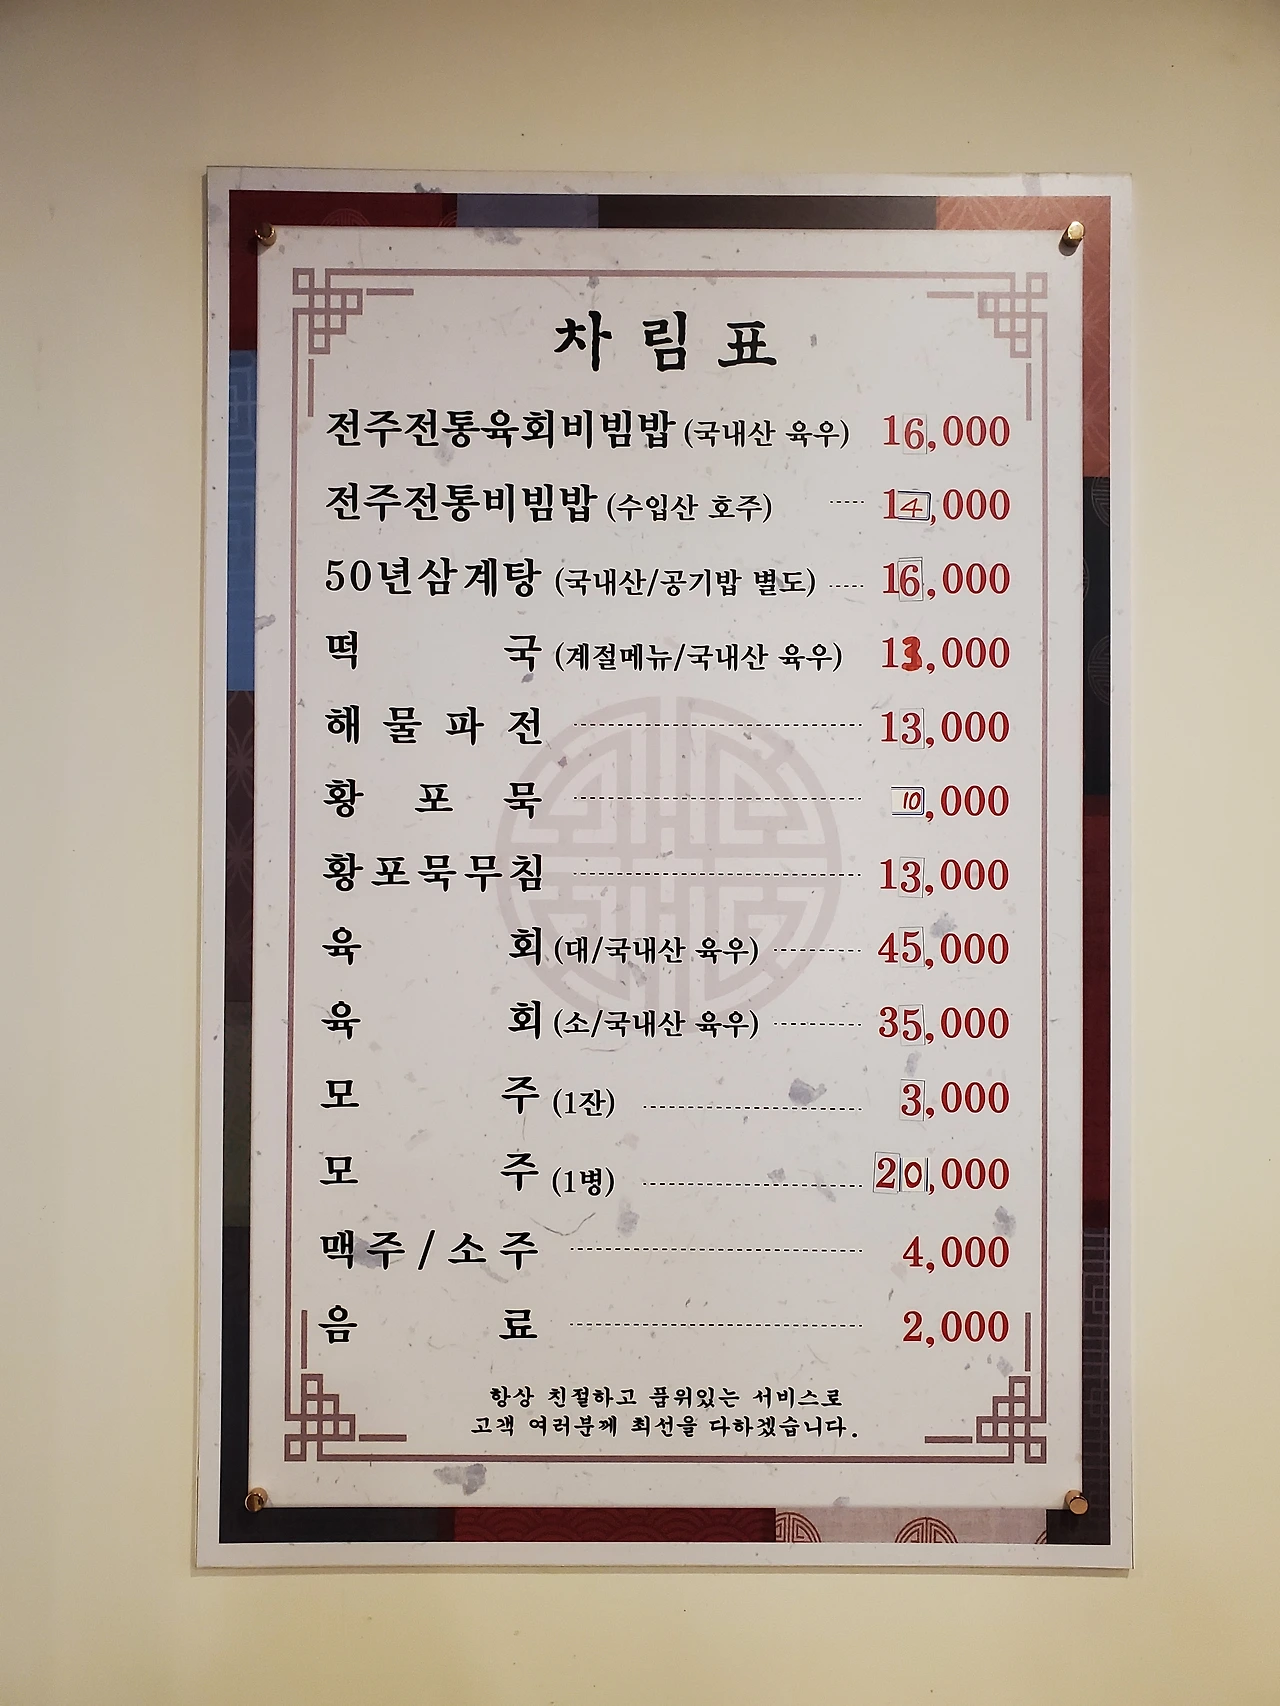 차림표
전주전통육회비빔밥 (국내산 육우) 16,000
전주전통비빔밥 (수입산 호주) 14,000
50년삼계탕 (국내산/공기밥 별도) 16,000
떡국 (계절메뉴/국내산 육우) 13,000
해물파전 13,000
황포묵 10,000
황포묵무침 13,000
육회 (대/국내산 육우) 45,000
육회 (소/국내산 육우) 35,000
모주 (1잔) 3,000
모주 (1병) 20,000
맥주/소주 4,000
음료 2,000
항상 친절하고 품위있는 서비스로
고객 여러분께 최선을 다하겠습니다.